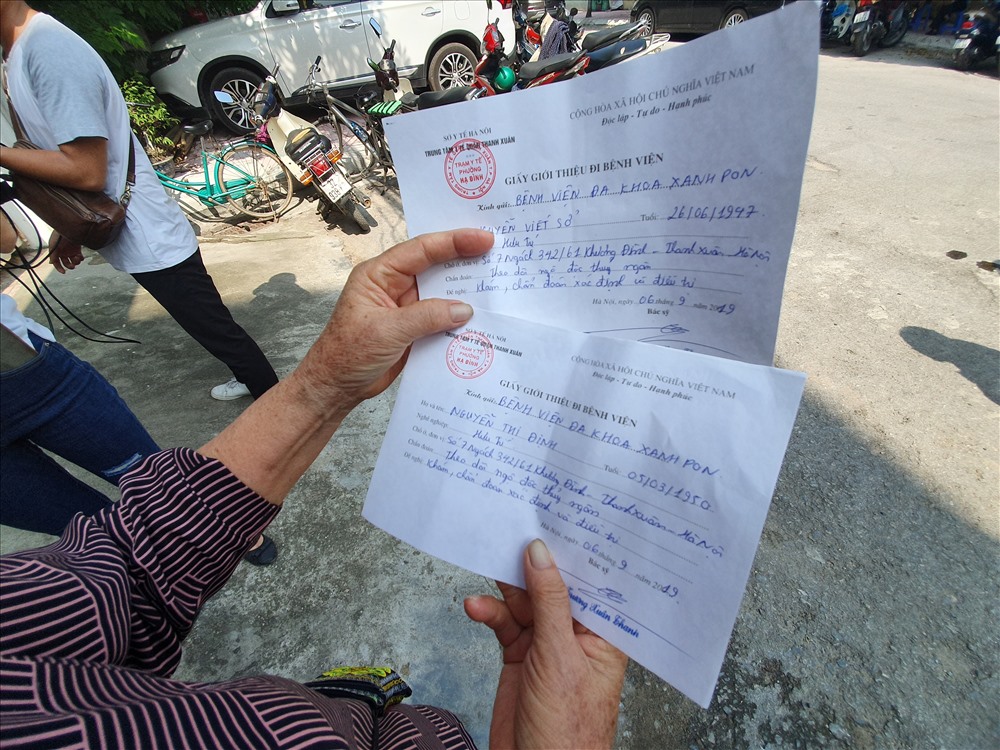 SỞ Y TẾ HÀ NỘI
TRUNG TÂM Y TẾ QUẬN THANH XUÂN
TRẠM Y TẾ
PHƯỜNG
HẠ ĐÌNH
CỘNG HÒA XÃ HỘI CHỦ NGHĨA VIỆT NAM
Độc lập - Tự do - Hạnh phúc
GIẤY GIỚI THIỆU ĐI BỆNH VIỆN
Kính gửi: BỆNH VIỆN ĐA KHOA XANH PON
VIẾT SỞ Tuổi: 26/06/1947
Hưu trí
Chỗ ở, đơn vị: Số 7 Ngách 342/61 Khương Đình - Thanh Xuân - Hà Nội
Chẩn đoán: Theo dõi ngộ độc thủy ngân
Đề nghị: Khám, chẩn đoán xác định và điều trị
Hà Nội, ngày 06 tháng 9 năm 2019
Bác sỹ
SỞ Y TẾ HÀ NỘI
TRUNG TÂM Y TẾ QUẬN THANH XUÂN
TRẠM Y TẾ
PHƯỜNG
HẠ ĐÌNH
CỘNG HÒA XÃ HỘI CHỦ NGHĨA VIỆT NAM
Độc lập - Tự do - Hạnh phúc
GIẤY GIỚI THIỆU ĐI BỆNH VIỆN
Kính gửi: BỆNH VIỆN ĐA KHOA XANH PON
Họ và tên: NGUYỄN THỊ ĐÍNH Tuổi: 05/03/1950
Nghề nghiệp: Hưu trí
Chỗ ở, đơn vị: Số 7 Ngách 342/61 Khương Đình - Thanh Xuân - Hà Nội
Chẩn đoán: Theo dõi ngộ độc thủy ngân
Đề nghị: Khám, chẩn đoán xác định và điều trị
Hà Nội, ngày 06 tháng 9 năm 2019
Bác sỹ
Xuân Thanh